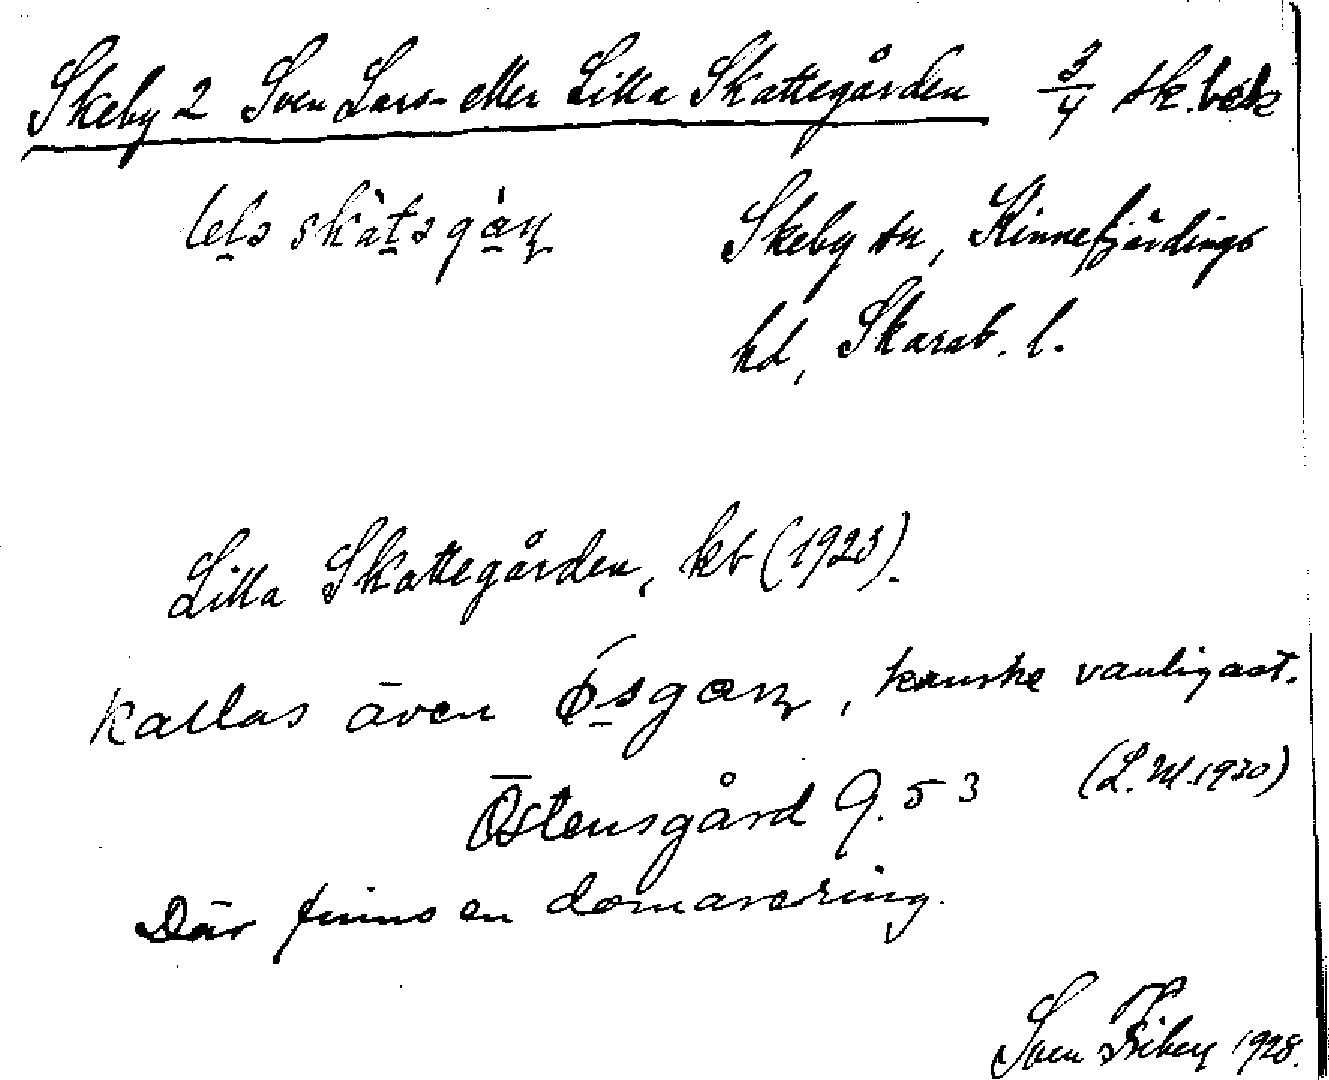 Skeby 2 Sven Lars- eller Lilla Skattegården 3/4 sk. besk
Skeby sn, Kinnefjärdings
hd, Skarab. l.
Lilla Skattegården, kb (1923).
Kallas även , kanske vanligast.
(L.M. 1930)
Östensgård 9. 53
Där finns en domarering.
Sven Friberg 1928.